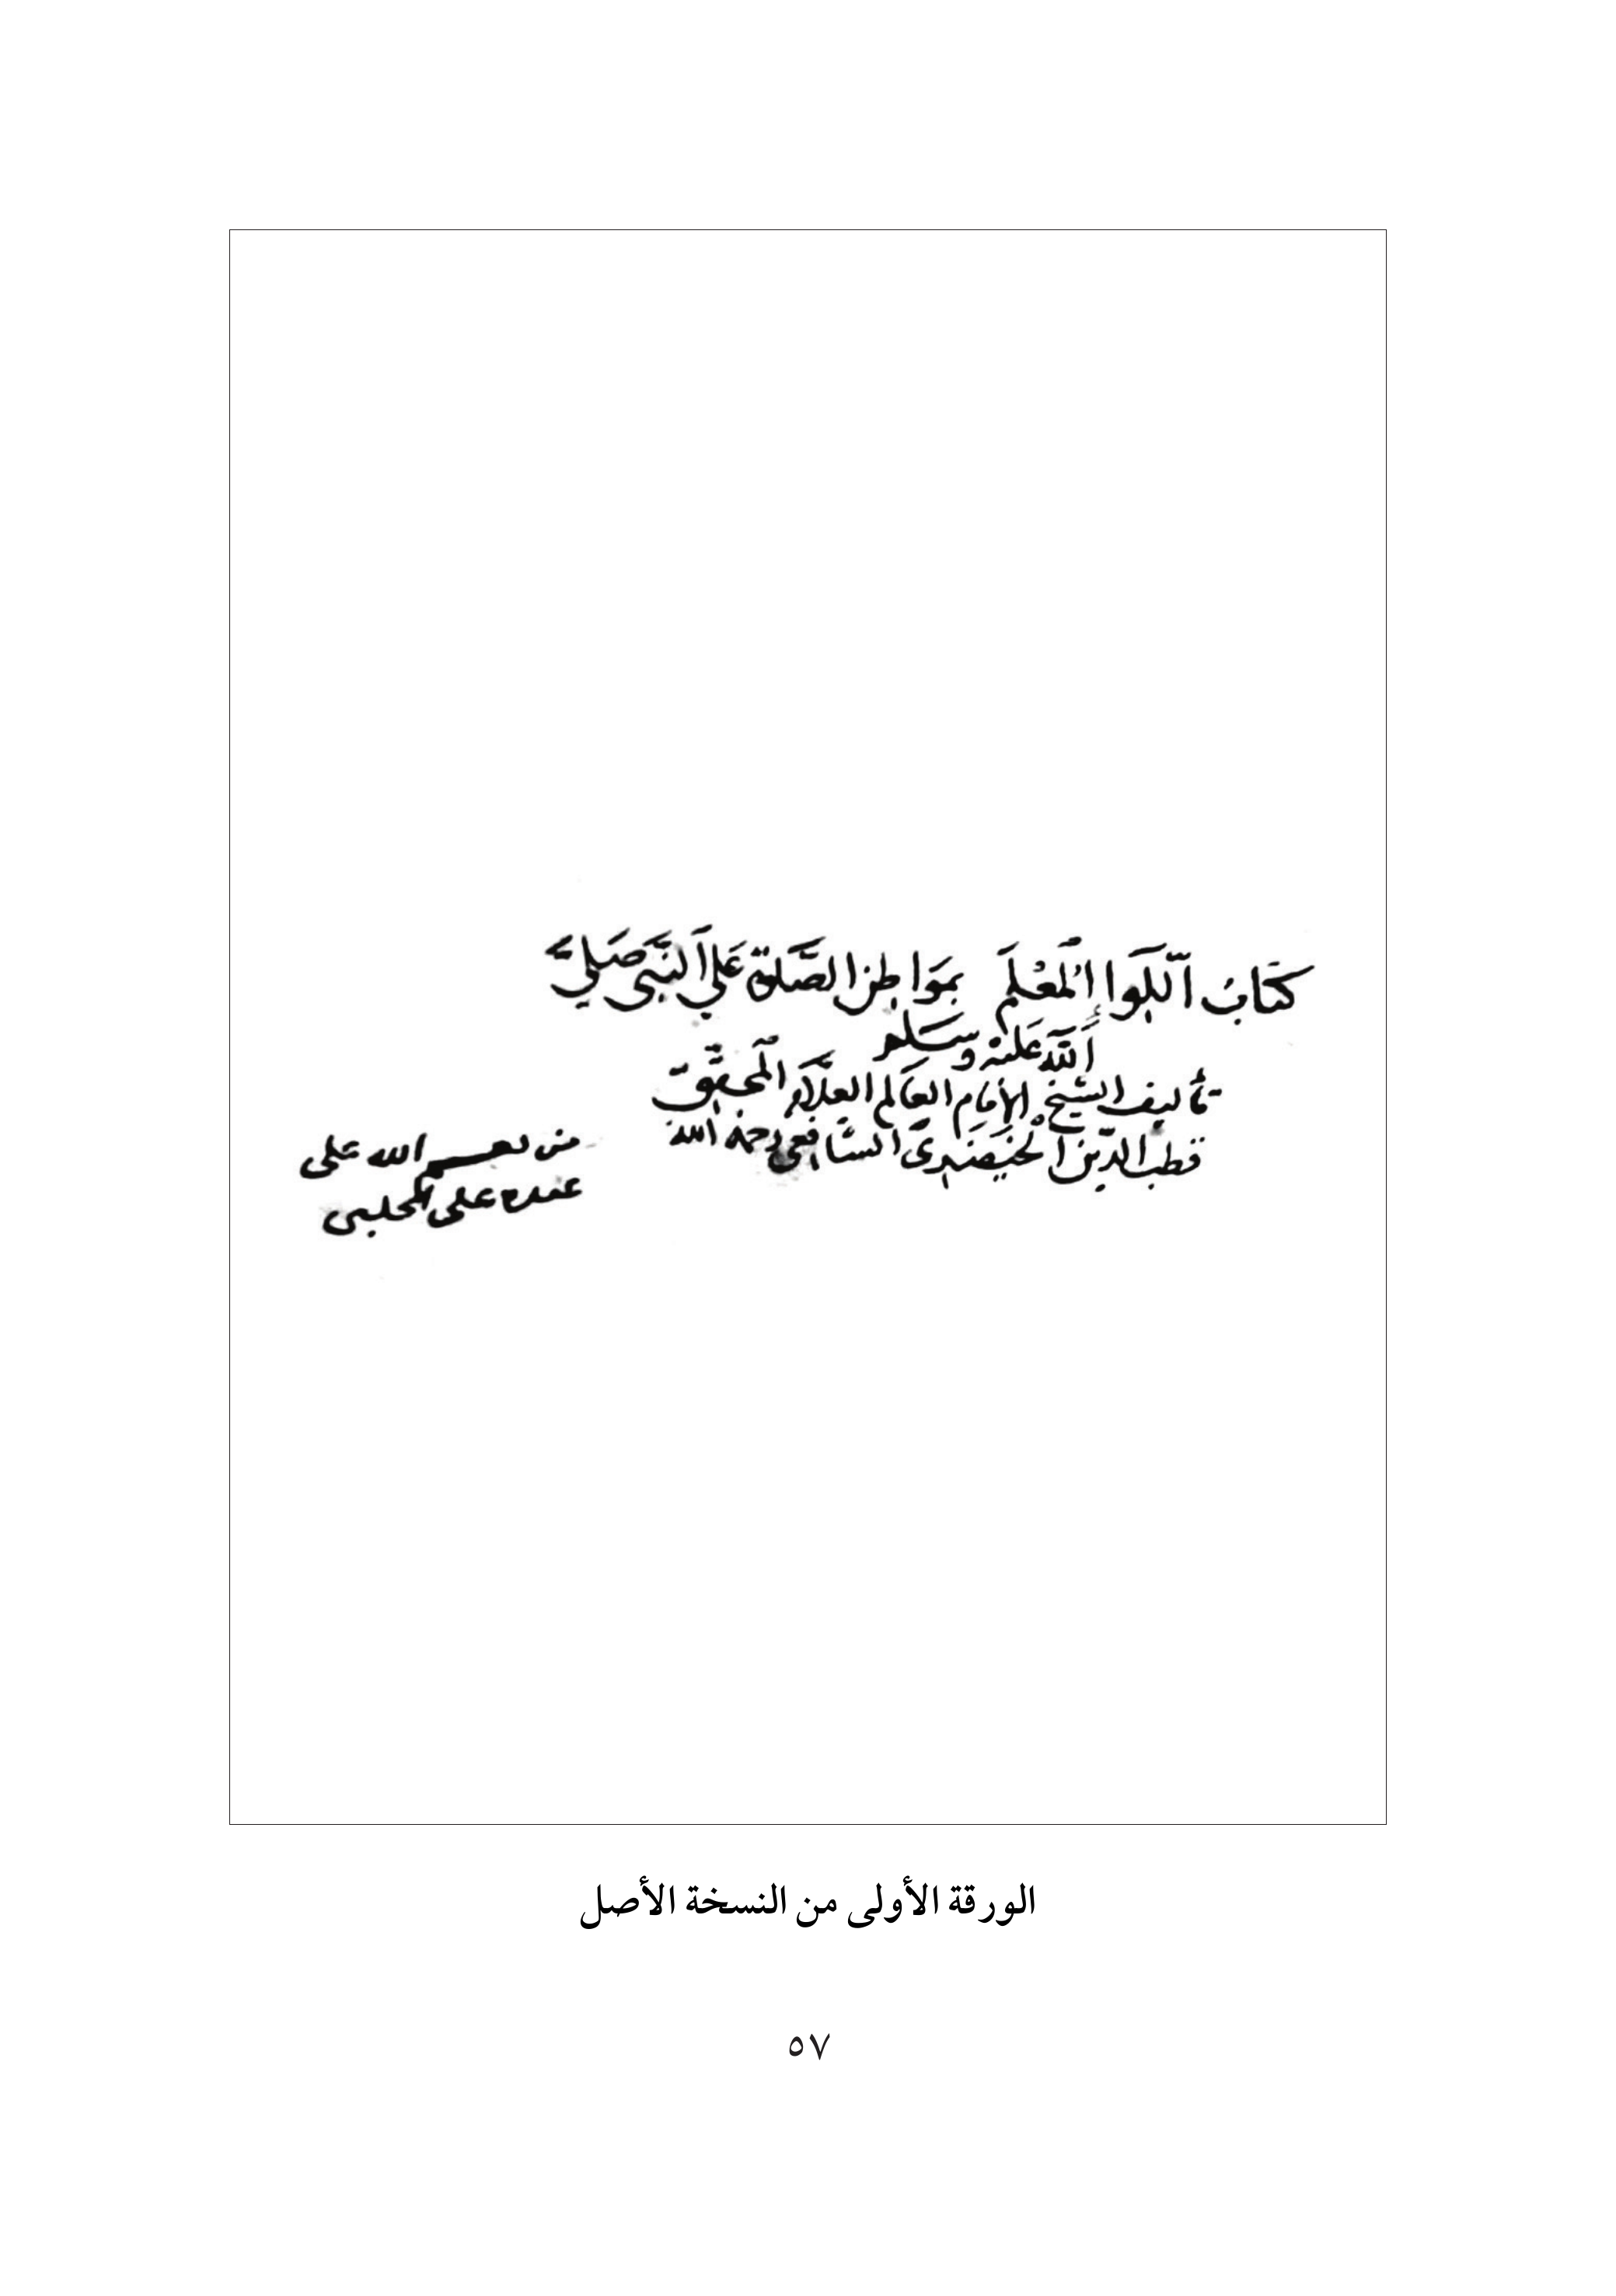 كتَابُ اللِّوَا إِلمُعْلَم بموَاطِن الصَّلاة عَلي النَّبي صَلَّي
اللّه عَليْه وسَلم
تأليف الشيخ الإمَام العَالم العلاَّمة المحقّق
قطب الدّين الخيضَري الشافعي رحمه الله
من نعم الله على
عبده على الحلبى
الورقة الأولى من النسخة الأصل
٥٧